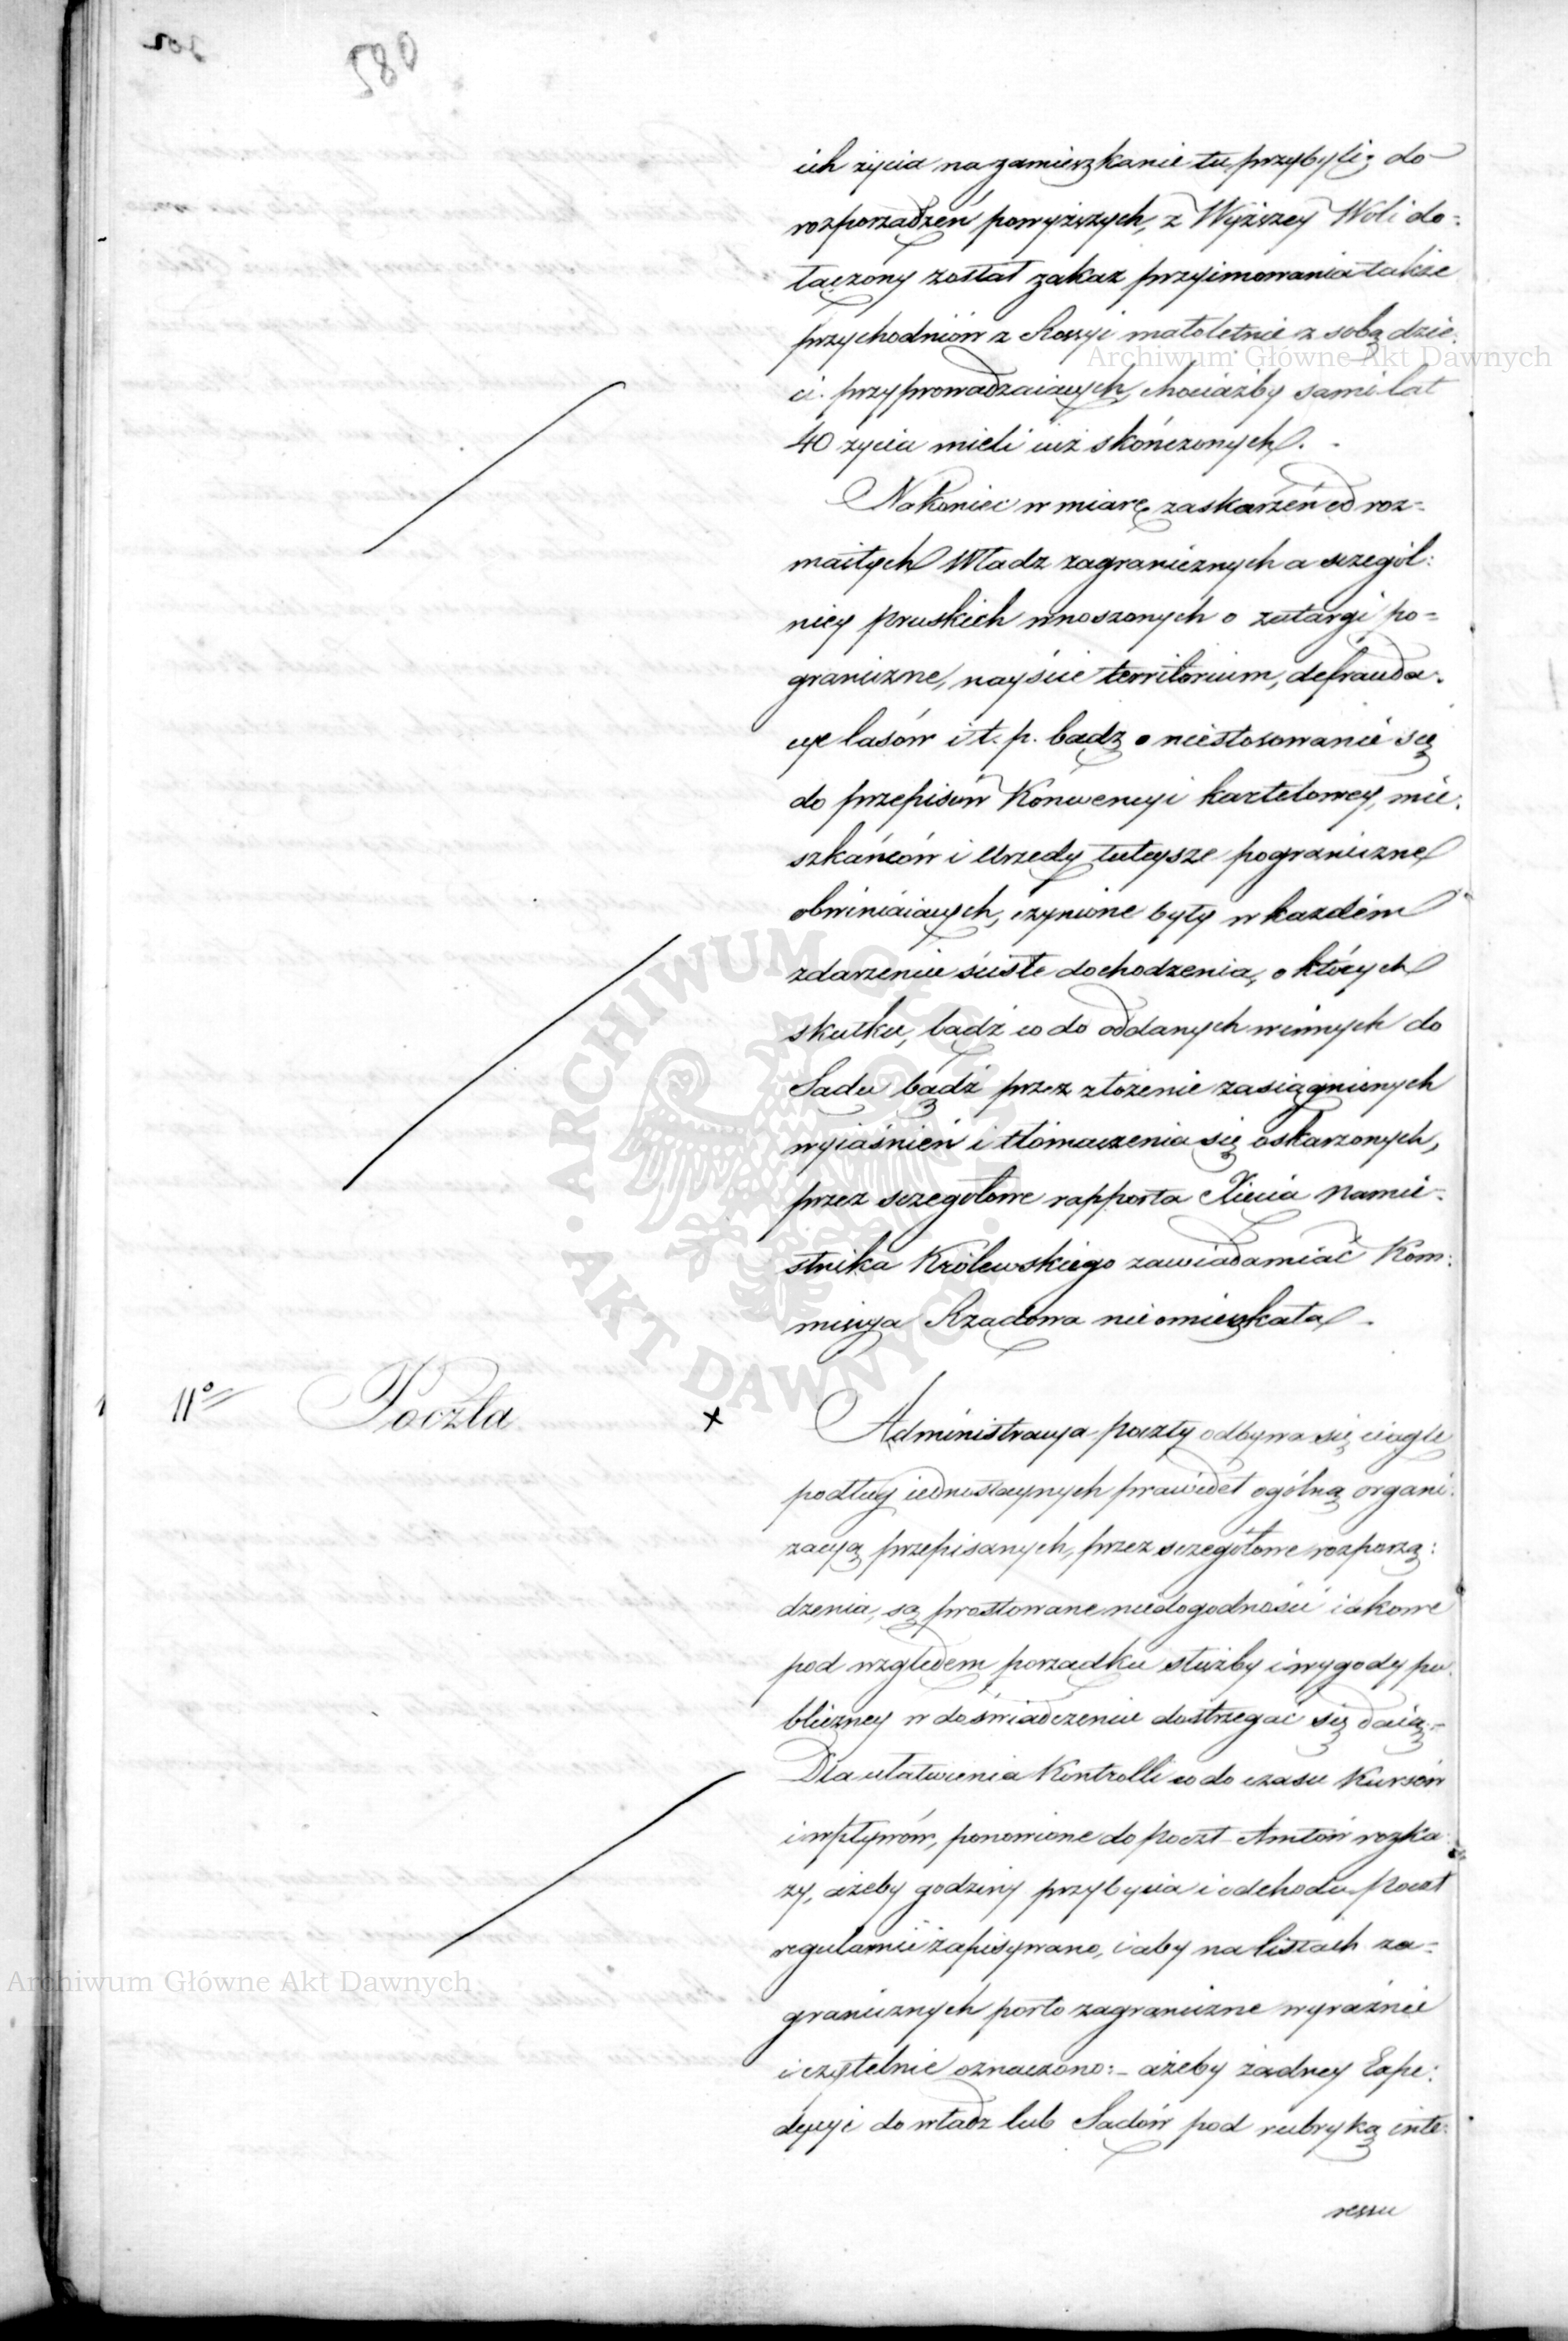 ich życia na zamieszkanie tu przybyli; do
rozporządzeń powyższych, z Wyższey Woli do-
łączony został zakaz przyimowania także
przychodniów z Rossyi małoletnie z sobą dzie-
Archiwum Główne Akt Dawnych
ci przyprowadzaiących, chociażby sami lat
40 życia mieli iuż skończonych. -
Nakoniec w miarę zaskarżeń od roz-
maitych Władz zagranicznych a szczegól:
niey pruskich wnoszonych o zatargi po-
graniczne, nayście territorium, defrauda-
cye lasów i t. p. bądź o niestosowanie się
do przepisów Konwencyi kartelowey, mie-
szkańców i Urzędy tuteysze pograniczne
obwiniaiących, czynione były w każdém
zdarzeniu ścisłe dochodzenia, o których
skutku, bądź co do oddanych winnych do
Sądu bądź przez złożenie zasiągnionych
wyiaśnień i tłómaczenia się oskarżonych,
przez szczegółowe rapporta Xięcia Namie-
stnika Królewskiego zawiadamiać Kom:
missya Rządowa nieomieszkała -
11º Poczta
Administracya poczty odbywa się ciągle
podług iednostaynych prawideł ogólną organi-
zacyą przepisanych, przez szczegółowe rozporzą:
dzenia, są prostowane niedogodności iakowe
pod względem porządku służby i wygody pu-
bliczney w doświadczeniu dostrzegać się daią.-
Dla ułatwienia Kontrolli co do czasu Kursów
i wpływów, ponowione do Poczt-Amtów rozka-
zy, ażeby godziny przybycia i odchodu Poczt
regularnie zapisywano, i aby na listach za-
Archiwum Główne Akt Dawnych
granicznych porto zagraniczne wyraźnie
i czytelnie oznaczono:- ażeby żadney Expe:
dycyi do władz lub Sądów pod rubryką inte:
ressu
ARCHIWUM GŁÓWNE AKT DAWNYCH